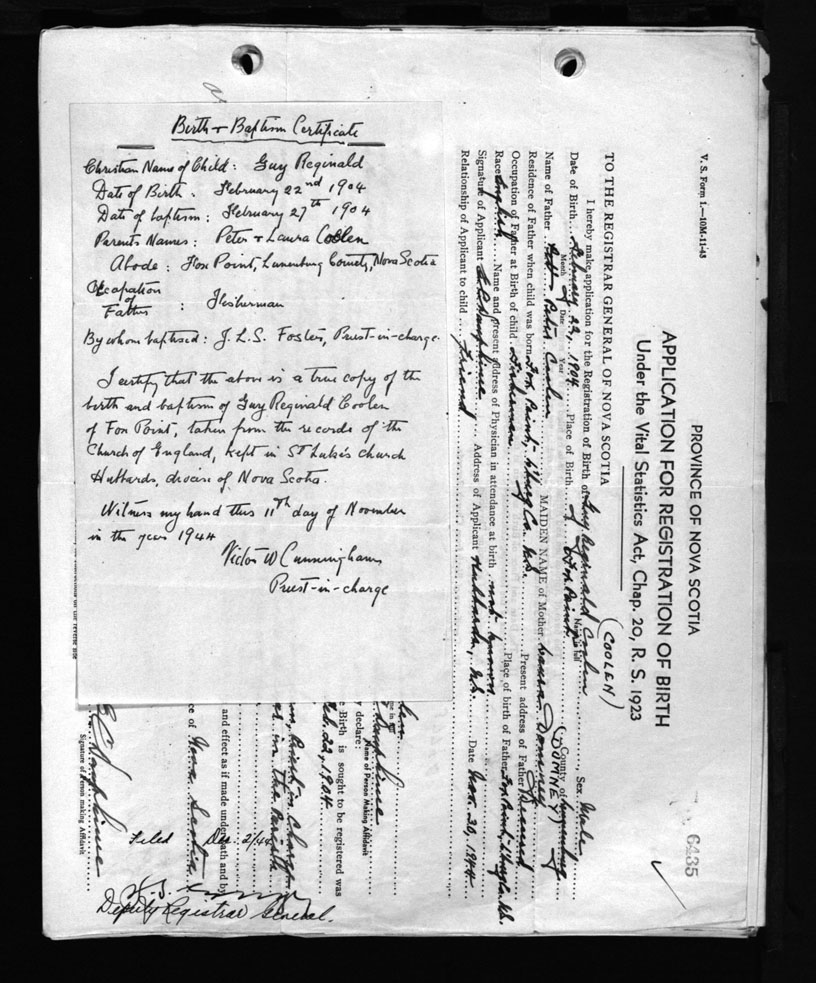 Birth + Baptism Certificate
Christian Name of Child: Guy Reginald
Date of Birth: February 22nd 1904
Date of baptism: February 27th 1904
Parents Names: Peter + Laura Coolen
Abode: Fox Point, Lunenburg County, Nova Scotia
Occupation of Father: Fisherman
By whom baptised: J.L.S. Foster, Priest-in-charge.
I certify that the above is a true copy of the
birth and baptism of Guy Reginald Coolen
of Fox Point, taken from the records of the
Church of England, kept in St Luke's church
Hubbards, diocese of Nova Scotia.
Witness my hand this 11th day of November
in the year 1944
Victor W Cunningham
Priest-in-charge
V. S. Form 1.—10M-11-43
6435
PROVINCE OF NOVA SCOTIA
APPLICATION FOR REGISTRATION OF BIRTH
Under the Vital Statistics Act, Chap. 20, R. S. 1923
TO THE REGISTRAR GENERAL OF NOVA SCOTIA
(COOLEN)
I hereby make application for the Registration of Birth of Guy Reginald Coolen Sex Male
Name in full
Date of Birth February 22, 1904 Place of Birth Fox Point County of Lunenburg
Month Date Year
(DOMNEY)
Name of Father Peter Coolen MAIDEN NAME of Mother Laura Domney
Residence of Father when child was born Fox Point, L'burg Co. N.S. Present address of Father Deceased
Occupation of Father at Birth of child Fisherman Place of birth of Father Fox Point, L'burg Co. N.S.
Race English Name and present address of Physician in attendance at birth not known
Signature of Applicant Dauphinee Address of Applicant Hubbards, N.S. Date Nov. 20, 1944
Relationship of Applicant to child friend
Dauphinee
Name of Person Making Affidavit
y declare:
e Birth is sought to be registered was
Feb. 22, 1904
Priest in Charge
in the Parish
and effect as if made under oath and by
ce of Nova Scotia
Filed Dec. 2/44
Dauphinee
Signature of Person making Affidavit
Deputy Registrar General.
on the reverse side